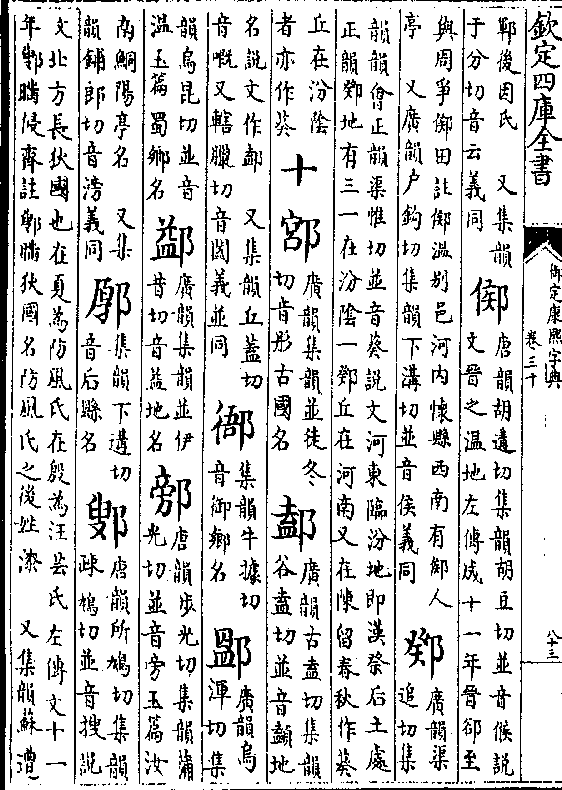 欽定四庫全書
御定康熙字典
卷三十
八十三
鄆後因氏　又集韻
于分切音云義同
鄇
唐韻胡遘切集韻胡豆切並音候說
文晉之温地左傳成十一年晉郤至
與周爭鄇田註鄇温别邑河内懷縣西南有鄇人
亭　又廣韻户鈎切集韻下溝切並音侯義同
鄈
廣韻渠
追切集
韻韻會正韻渠惟切並音葵說文河東臨汾地即漢祭后土處
正韻鄈地有三一在汾陰一鄈丘在河南又在陳留春秋作葵
丘在汾陰
者亦作葵
十
廣韻集韻並徒冬
切音彤古國名
廣韻古盍切集韻
谷盍切並音 地
名說文作 　又集韻丘蓋切
音嘅又轄臘切音闔義並同
集韻牛據切
音御鄉名
廣韻烏
渾切集
韻烏昆切並音
温玉篇蜀鄉名
廣韻集韻並伊
昔切音益地名
唐韻步光切集韻蒲
光切並音旁玉篇汝
南鮦陽亭名　又集
韻鋪郎切音滂義同
集韻下遘切
音后縣名
鄋
唐韻所鳩切集韻
疎鳩切並音搜說
文北方長狄國也在夏為防風氏在殷為汪芒氏左傳文十一
年鄋瞞侵齊註鄋瞞狄國名防風氏之後姓漆　又集韻蘇遭